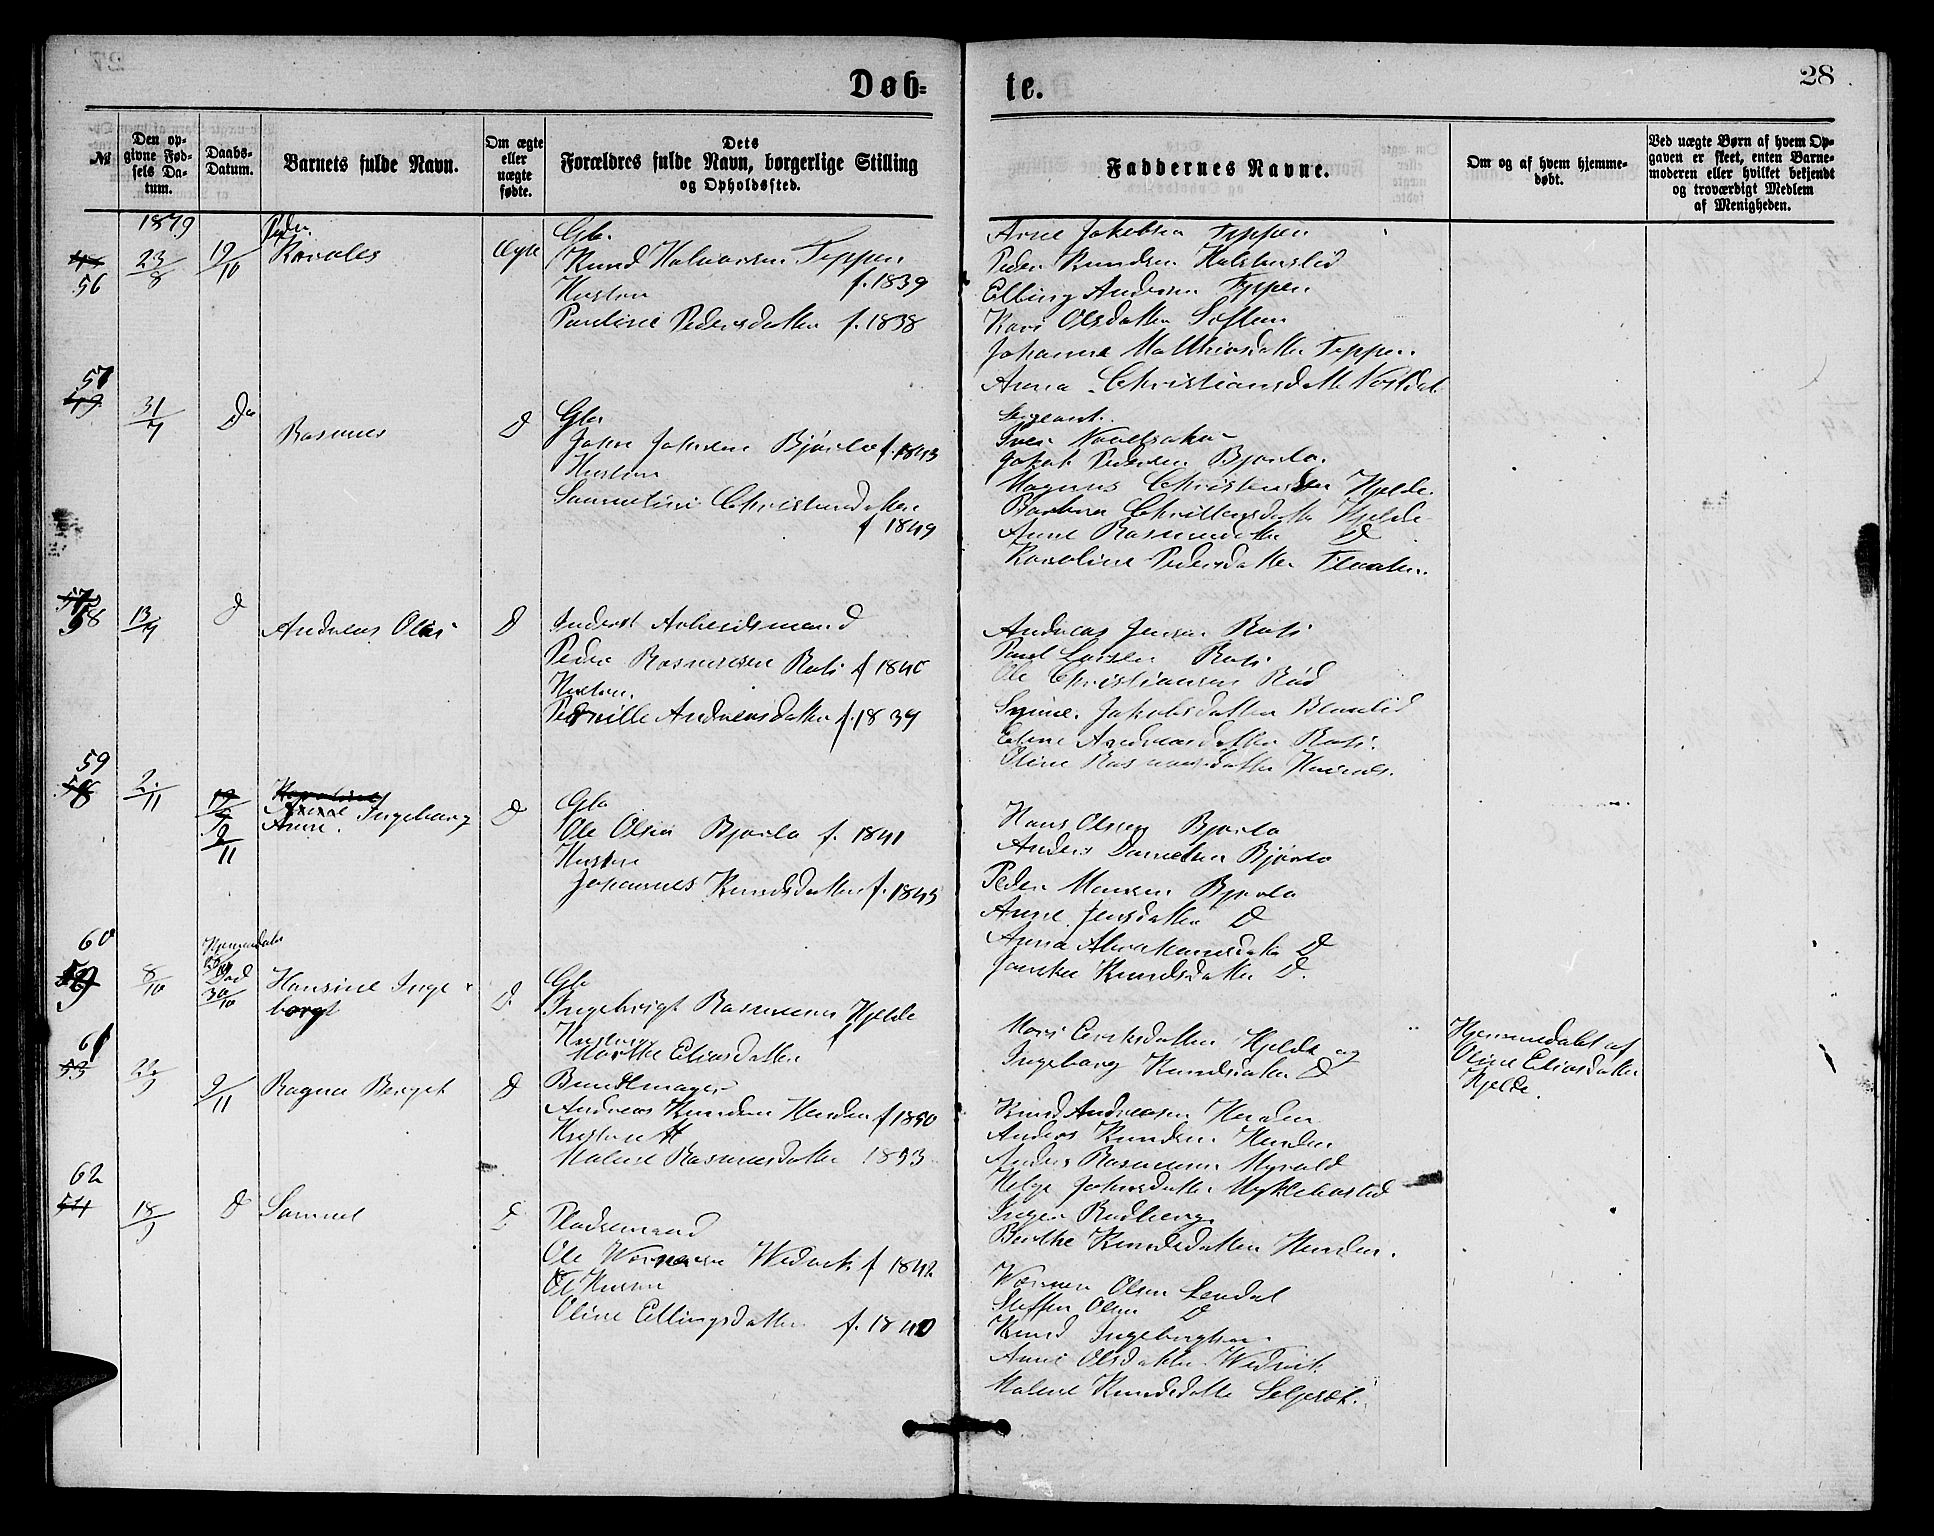 28
Døb=
te.
№
Den op-
givne Fød-
sels Da-
tum.
Daabs-
Datum.
Barnets fulde Navn.
Om ægte
eller
uægte
fødte.
Dets
Forældres fulde Navn, borgerlige Stilling
og Opholdssted.
Faddernes Navne.
Om og af hvem hjemme-
døbt.
Ved uægte Børn af hvem Op-
gaven er skeet, enten Barne-
moderen eller hvilket bekjendt
og troværdigt Medlem
af Menigheden.
1879
56
23/8
19/10
Peder
Ægte
Gbr.
Knud Halvorsen Teppen
f. 1839
Huston
Pauline Pedersdatter f. 1838
Arne Jakobsen Teppen
Peder Knudsen
Elling Andersen Teppen
Kari Olsdatter
Johanna Matthiasdatter Teppen
Anna Christiansdatt
57
31/7
Do
Rasmus
D
Gbr
John Johnsen Bjørlo f. 1843
Huston
Samueline Christensdatter
f 1849
Sergeant
Jakob Pedersen Bjørlo.
Magnus Christensen Hjelde.
Barbra Christensdatter Hjelde
Anne Rasmusdatter D
Karoline Pedersdatter
58
13/9
D
Andreas Olai
D
Inderst Arbeidsmand
Peder Rasmussen Rati f 1840
Huston.
Pernille Andreasdatter f. 1839
Andreas Jensen Rati
Paul Larsen Rati
Ole Christiansen Rød
Synne Jakobsdatter
Eline Andreasdatter Rati.
Oline Rasmusdatter
59
2/11
9/11
Anne Ingeborg
D
Gbr
Ole Olsen Bjørlo f. 1841
Huston
Johannes Knudsdatter f. 1845
Hans Olsen Bjørlo
Anders Danielsen Bjørlo
Peder Monsen Bjørlo
Anne Jensdatter D
Anna Abrahamsdatter D
Knudsdatter D.
60
8/10
Hjemmedøbt
Død
30/10
Hansine Inge-
borg
D.
Gbr
Ingebrigt Rasmussen Hjelde
Huston
Marthe Eliasdatter
Mari Eriksdatter Hjelde og
Ingeborg Knudsdatter D
Hjemmedøbt af
Oline Eliasdatter
Hjelde.
61
9/11
Ragna Berget
D
Bundtmager
Andreas Knudsen Henden f 1850
Huston
Malene Rasmusdatter 1853
Knud Andreasen Henden
Anders Knudsen Henden
Anders Rasmussen Myrold
Helge Johnsdatter Myklebustad
Inger Rødberg
Berthe Knudsdatter Henden.
62
18/9
D
Samuel
D
Pladsemand
Ole Wernersen Wedvik f 1842
Huston
Oline Ellingsdatter f. 1840
Werner Olsen Lendal
Steffen Olsen D
Knud Ingebrigtsen
Anne Olsdatter Wedvik
Malene Knudsdatter